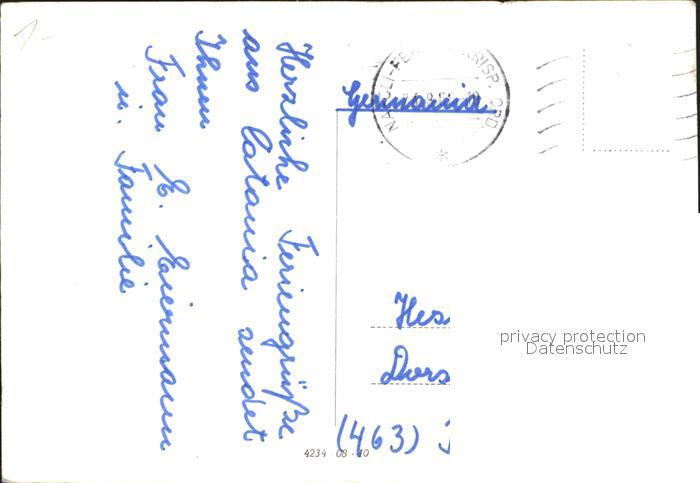 1-
Herzliche Feriengrüße
aus Catania sendet
Ihnen
Frau E. Eiermann
u. Familie
Germania
NAPOLI-FER
CRISP. ORD.
*
Hes
Dors
(463)
privacy protection
Datenschutz
4234 08-10